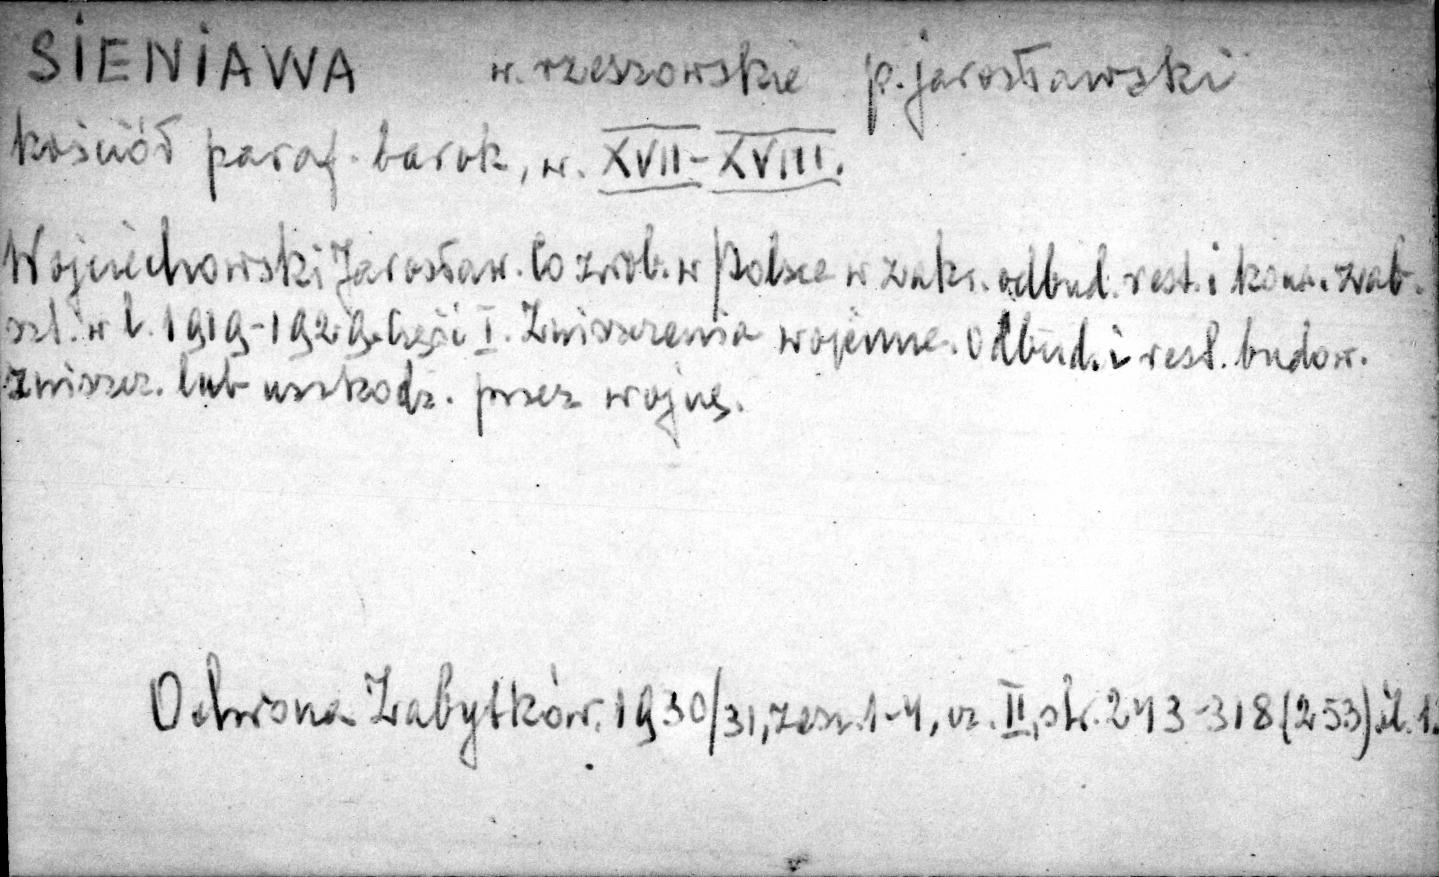 SIENIAWA w. rzeszowskie p. jarosławski
kościół paraf. barok, w. XVII-XVIII.
Wojciechowski Jarosław. Co zrob. w Polsce w zakr. odbud. rest. i kons. zab.
szt. w l. 1919-1929. Część I. Zniszczenia wojenne. Odbud. i rest. budow.
zniszcz. lub uszkodz. przez wojnę.
Ochrona Zabytków. 1930/31, zesz. 1-4, cz. II, str. 243-318 (253) il. 1.